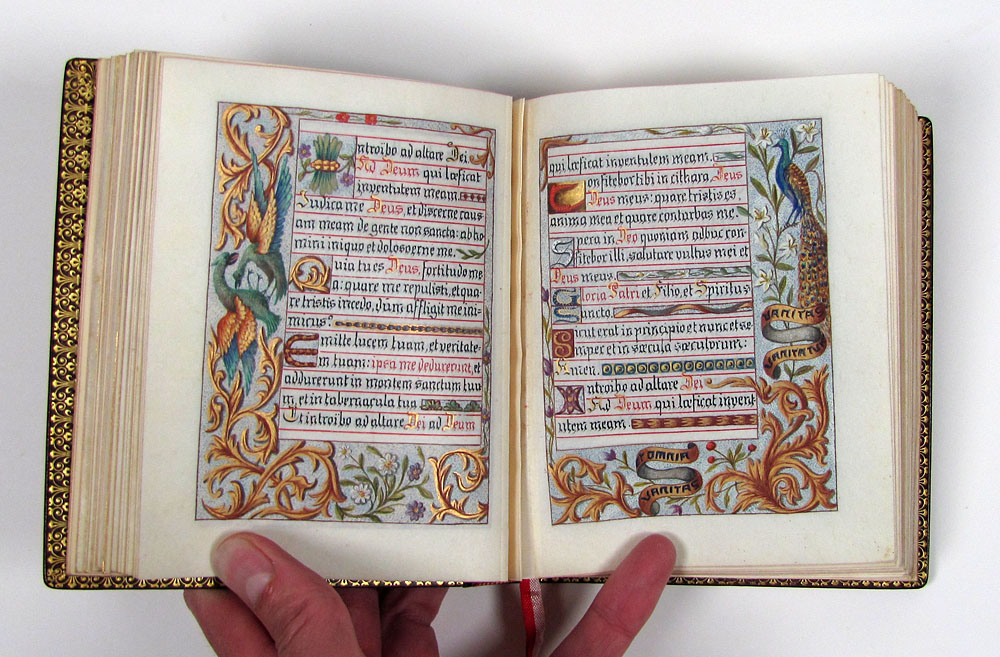 ntroibo ad altare Dei
Ad Deum qui læficat
inventutem meam.
Judica me Deus, et discerne caus
am meam de gente non sancta: ab ho
mini iniquo et dolosoerne me.
Quia tu es Deus, fortitudo me
a: quare me repulisti, et qua
re tristis incedo, dum affligit me ini-
micus?
Emitte lucem tuam, et veritate-
m tuam: ipsa me deduxerunt, et
adduxerunt in montem sanctum tuu
m, et in tabernacula tua
Et introïbo ad altare Dei ad Deum
qui læficat inventutem meam.
Confitebor tibi in cithara, Deus
Deus meus: quare tristis es,
anima mea et quare conturbas me.
Spera in Deo quoniam adhuc con-
fitebor illi, salutare vultus mei et
Deus meus.
Gloria Patri et Filho, et Spiritus
Sancto.
Sicut erat in principio et nunc et se-
mper et in sæcula sæculorum:
Amen.
Introibo ad altare Dei
Ad Deum qui læficat invent
utem meam.
VANITAS
VANITATUM
OMNIA
VANITAS